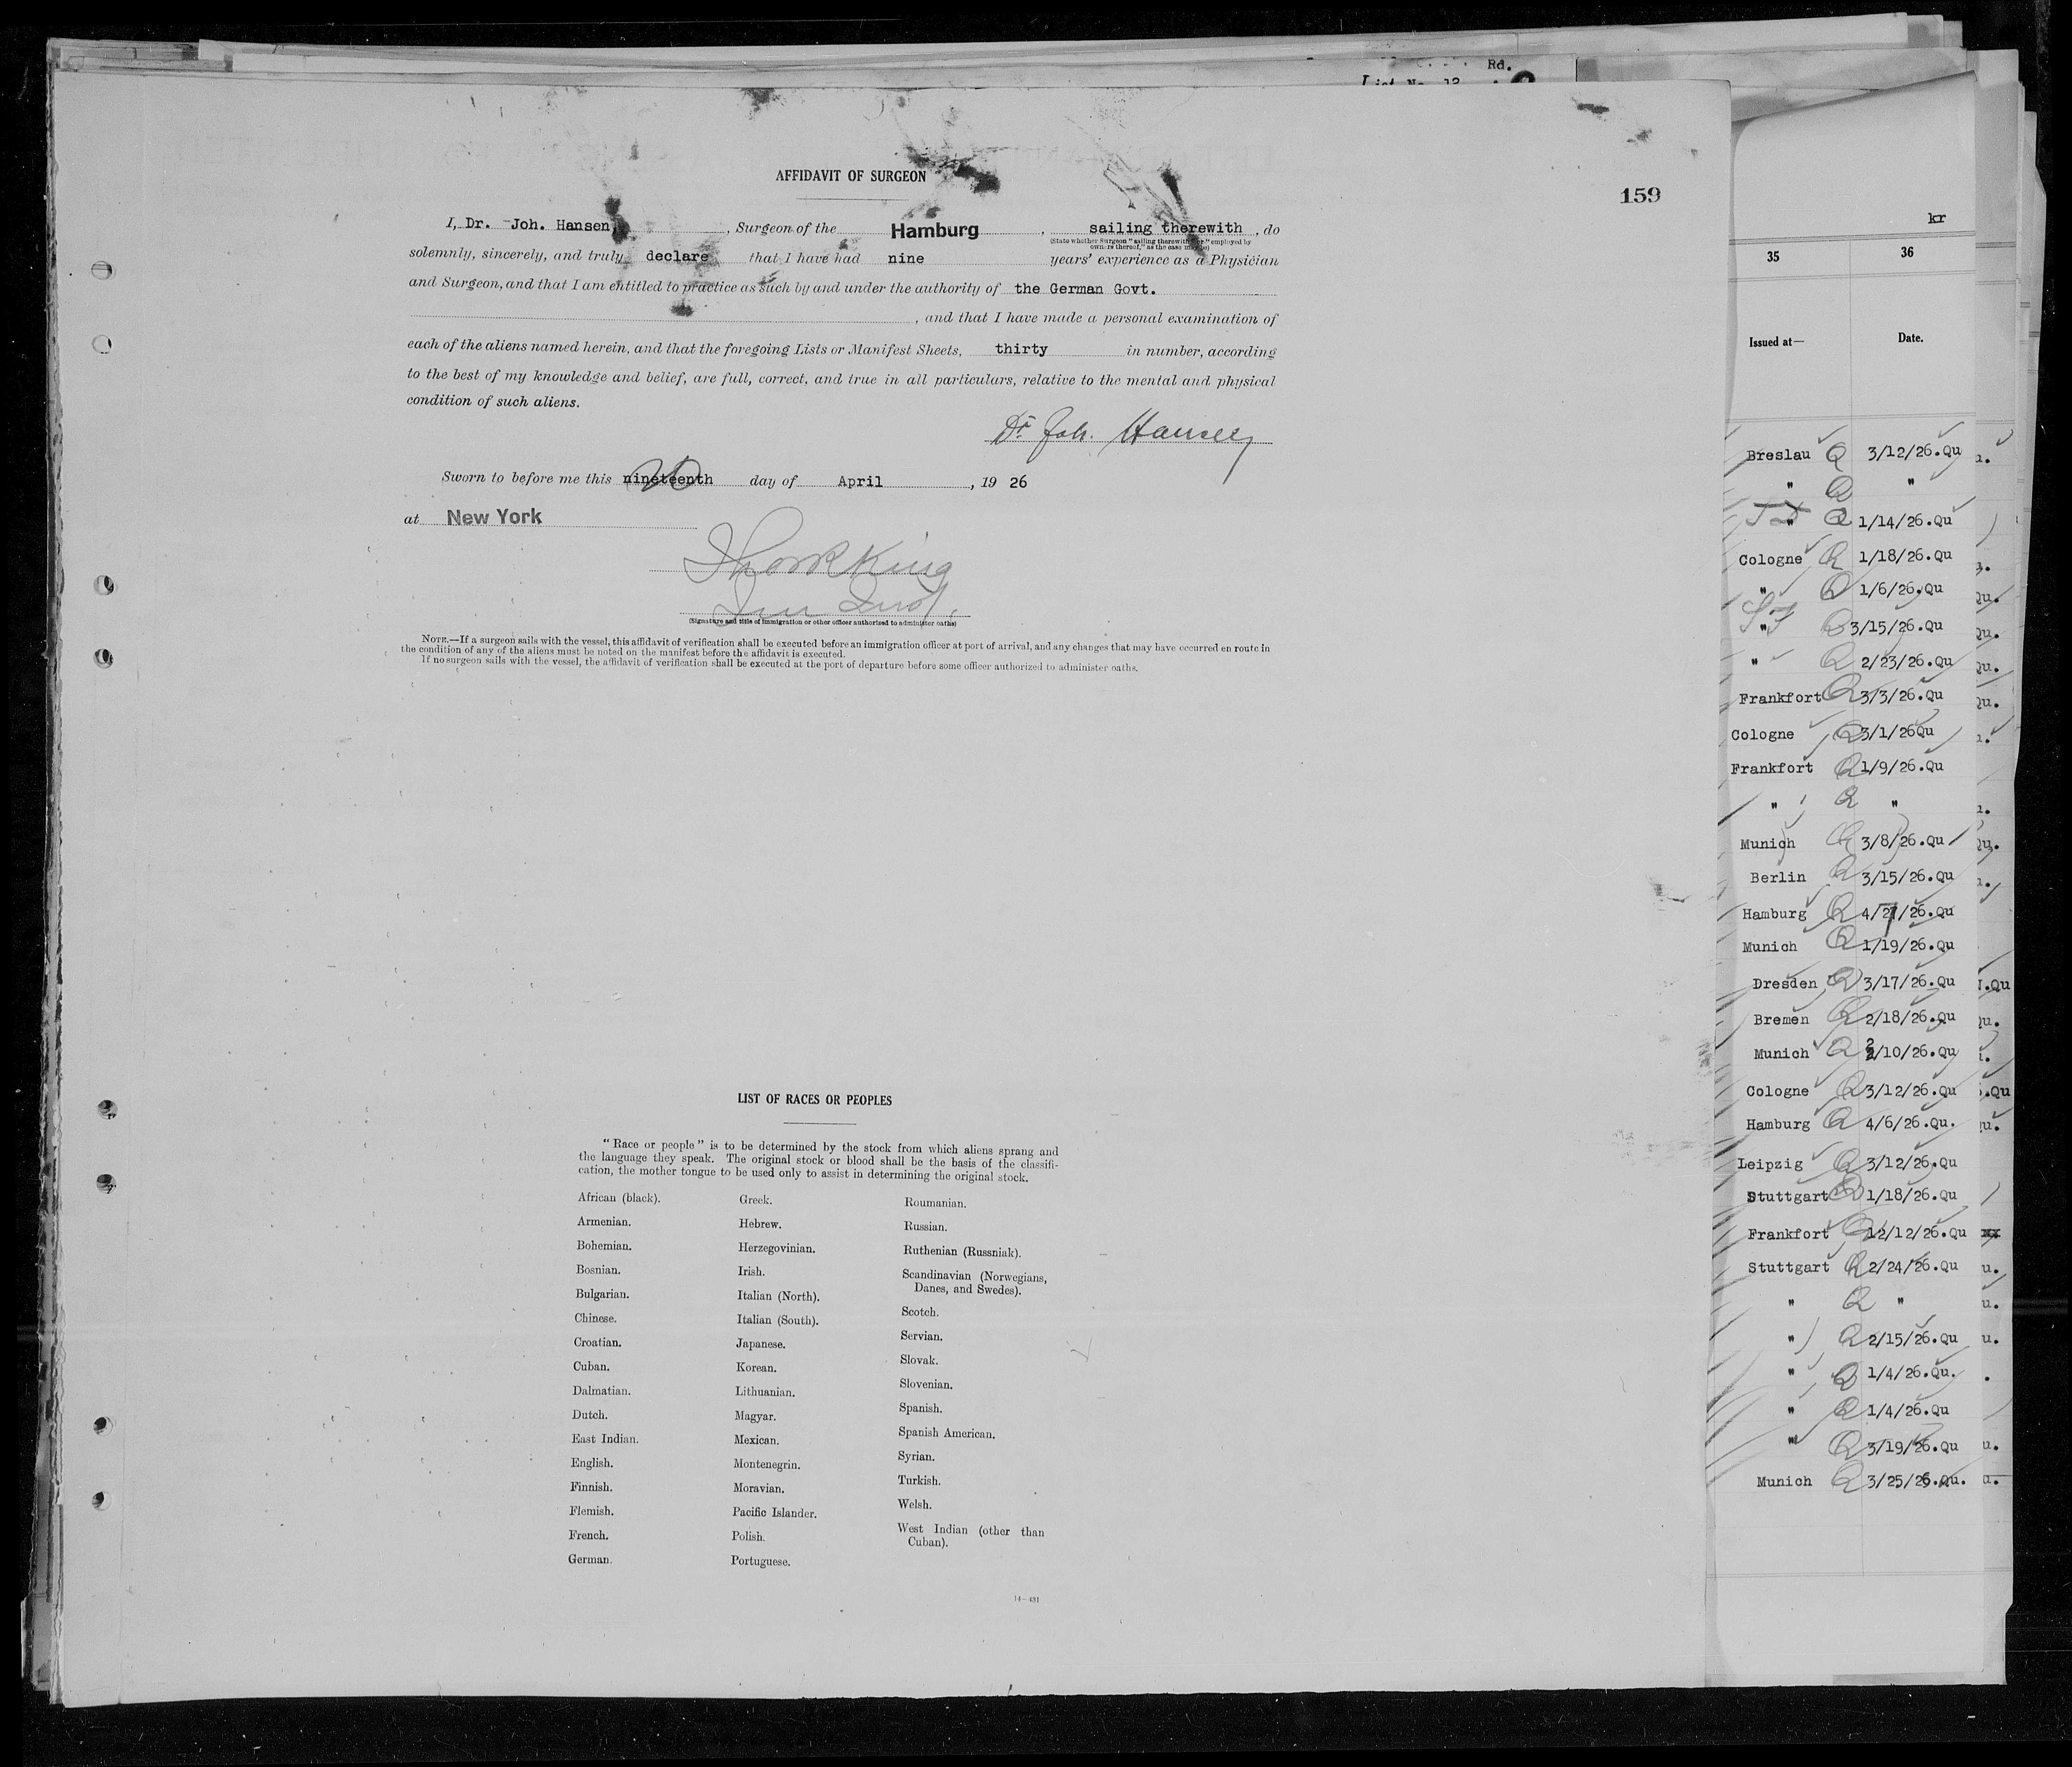 Rd.
List No. 12
AFFIDAVIT OF SURGEON
159
I, Dr. Joh. Hansen, Surgeon of the Hamburg, sailing therewith, do
(State whether Surgeon "sailing therewith" or "employed by
owners thereof," as the case may be)
solemnly, sincerely, and truly declare that I have had nine years' experience as a Physician
and Surgeon, and that I am entitled to practice as such by and under the authority of the German Govt.
, and that I have made a personal examination of
each of the aliens named herein, and that the foregoing Lists or Manifest Sheets, thirty in number, according
to the best of my knowledge and belief, are full, correct, and true in all particulars, relative to the mental and physical
condition of such aliens.
Dr. Joh. Hansen
Sworn to before me this nineteenth 20 day of April, 19 26
at New York
(Signature and title of immigration or other officer authorized to administer oaths)
NOTE.—If a surgeon sails with the vessel, this affidavit of verification shall be executed before an immigration officer at port of arrival, and any changes that may have occurred en route in
the condition of any of the aliens must be noted on the manifest before the affidavit is executed.
If no surgeon sails with the vessel, the affidavit of verification shall be executed at the port of departure before some officer authorized to administer oaths.
LIST OF RACES OR PEOPLES
"Race or people" is to be determined by the stock from which aliens sprang and
the language they speak. The original stock or blood shall be the basis of the classifi-
cation, the mother tongue to be used only to assist in determining the original stock.
African (black).
Armenian.
Bohemian.
Bosnian.
Bulgarian.
Chinese.
Croatian.
Cuban.
Dalmatian.
Dutch.
East Indian.
English.
Finnish.
Flemish.
French.
German.
Greek.
Hebrew.
Herzegovinian.
Irish.
Italian (North).
Italian (South).
Japanese.
Korean.
Lithuanian.
Magyar.
Mexican.
Montenegrin.
Moravian.
Pacific Islander.
Polish.
Portuguese.
Roumanian.
Russian.
Ruthenian (Russniak).
Scandinavian (Norwegians,
Danes, and Swedes).
Scotch.
Servian.
Slovak.
Slovenian.
Spanish.
Spanish American.
Syrian.
Turkish.
Welsh.
West Indian (other than
Cuban).
14—431
kr
35 36
Issued at— Date.
Breslau Q 3/12/26.Qu
" Q "
" Q 1/14/26.Qu
Cologne Q 1/18/26.Qu
" Q 1/6/26.Qu
" Q 3/15/26.Qu
" Q 2/23/26.Qu
Frankfort Q 3/3/26.Qu
Cologne Q 3/1/26Qu
Frankfort Q 1/9/26.Qu
" Q "
Munich Q 3/8/26.Qu
Berlin Q 3/15/26.Qu
Hamburg Q 4/27/26.Qu
Munich Q 1/19/26.Qu
Dresden Q 3/17/26.Qu
Bremen Q 2/18/26.Qu
Munich Q 2/10/26.Qu
Cologne Q 3/12/26.Qu
Hamburg Q 4/6/26.Qu.
Leipzig Q 3/12/26.Qu
Stuttgart Q 1/18/26.Qu
Frankfort Q 12/12/26.Qu
Stuttgart Q 2/24/26.Qu
" Q "
" Q 2/15/26.Qu
" Q 1/4/26.Qu.
" Q 1/4/26.Qu
" Q 3/19/26.Qu
Munich Q 3/25/26.Qu.